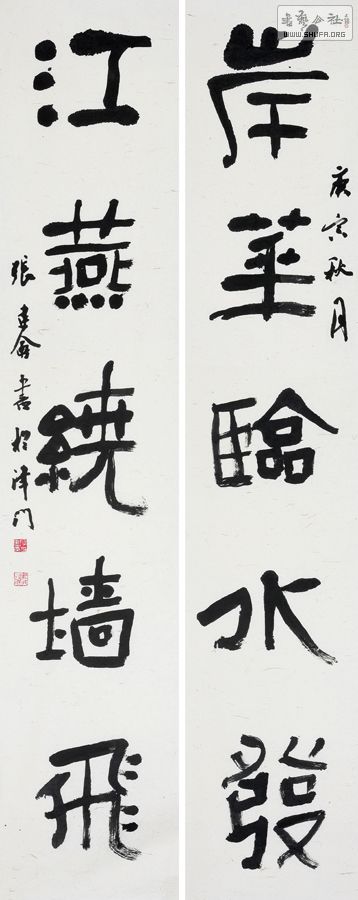 岸華臨水發
庚寅秋月
江燕繞墙飛
張建會書於津門
書藝公社
WWW.SHUFA.ORG